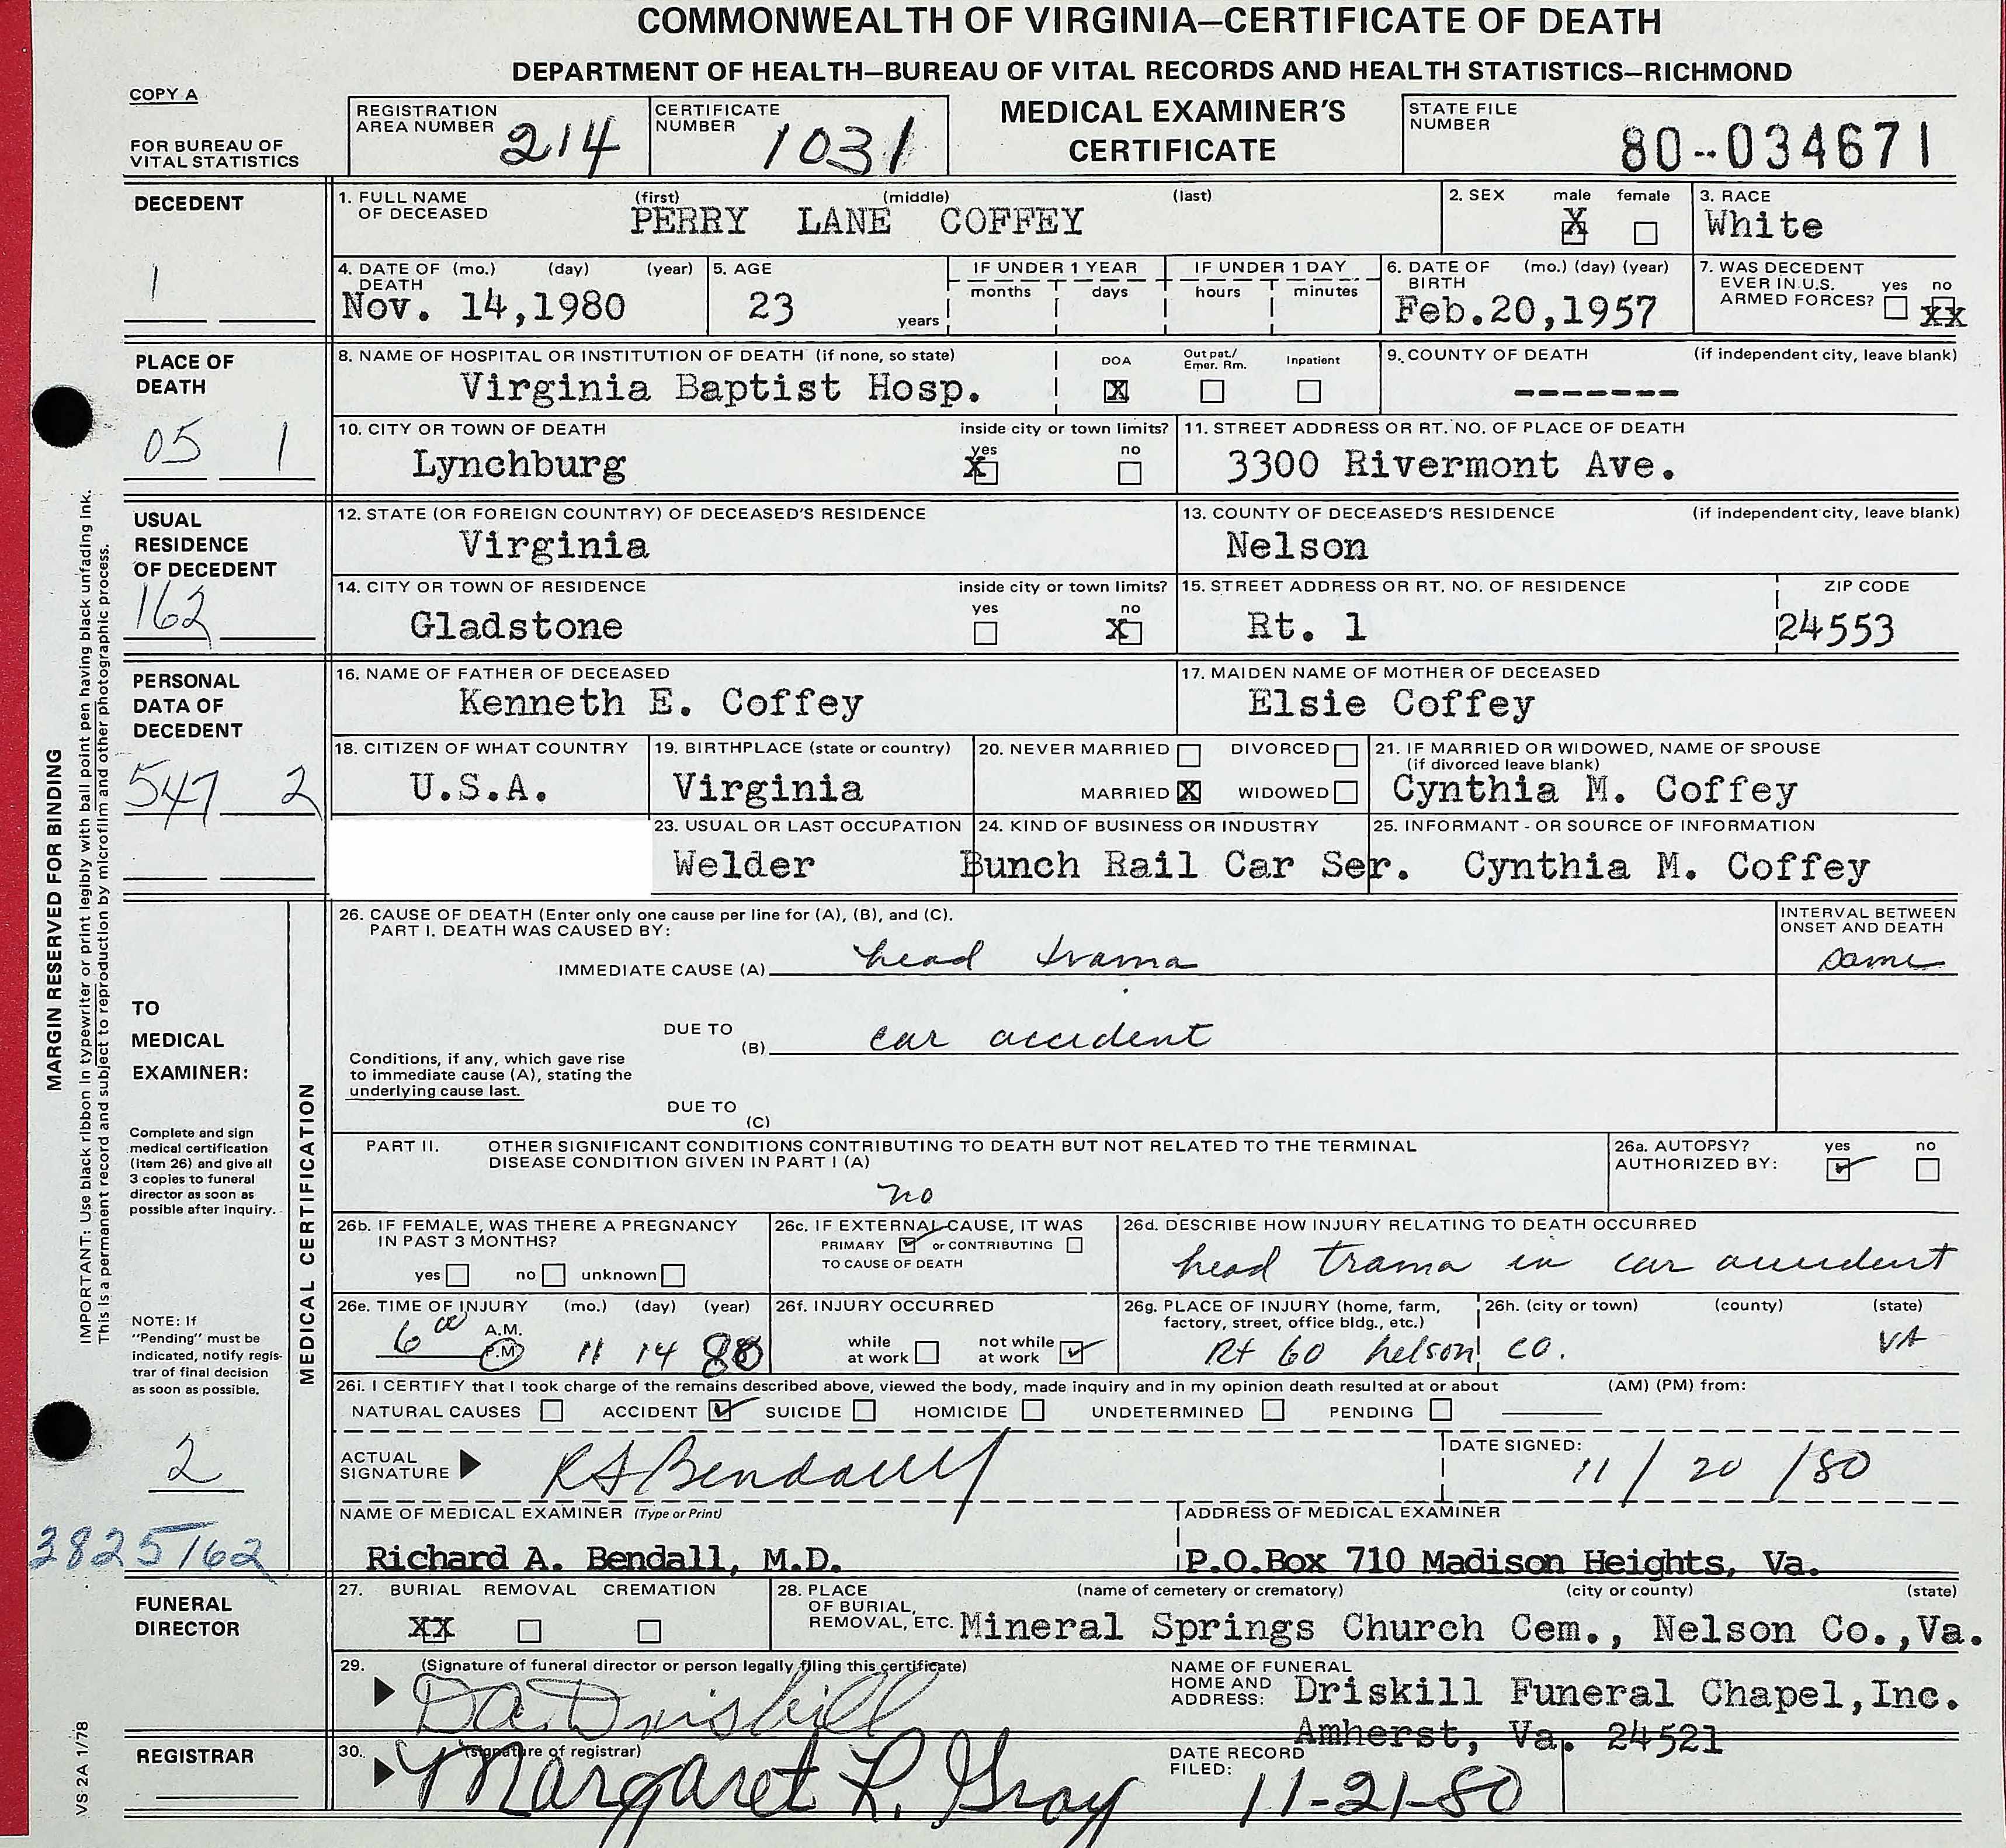 COMMONWEALTH OF VIRGINIA—CERTIFICATE OF DEATH
DEPARTMENT OF HEALTH—BUREAU OF VITAL RECORDS AND HEALTH STATISTICS—RICHMOND
COPY A
FOR BUREAU OF
VITAL STATISTICS
REGISTRATION
AREA NUMBER 214
CERTIFICATE
NUMBER 1031
MEDICAL EXAMINER'S
CERTIFICATE
STATE FILE
NUMBER 80--034671
DECEDENT
1
1. FULL NAME (first) (middle) (last)
OF DECEASED PERRY LANE COFFEY
2. SEX male female
X
3. RACE
White
4. DATE OF (mo.) (day) (year)
DEATH
Nov. 14,1980
5. AGE
23 years
IF UNDER 1 YEAR
months days
IF UNDER 1 DAY
hours minutes
6. DATE OF (mo.) (day) (year)
BIRTH
Feb.20,1957
7. WAS DECEDENT
EVER IN U.S. yes no
ARMED FORCES? XX
PLACE OF
DEATH
05 1
8. NAME OF HOSPITAL OR INSTITUTION OF DEATH (if none, so state)
Virginia Baptist Hosp.
DOA Out pat./ Emer. Rm. Inpatient
X
9. COUNTY OF DEATH (if independent city, leave blank)
-------
10. CITY OR TOWN OF DEATH inside city or town limits?
yes no
Lynchburg X
11. STREET ADDRESS OR RT. NO. OF PLACE OF DEATH
3300 Rivermont Ave.
USUAL
RESIDENCE
OF DECEDENT
162
12. STATE (OR FOREIGN COUNTRY) OF DECEASED'S RESIDENCE
Virginia
13. COUNTY OF DECEASED'S RESIDENCE (if independent city, leave blank)
Nelson
14. CITY OR TOWN OF RESIDENCE inside city or town limits?
yes no
Gladstone X
15. STREET ADDRESS OR RT. NO. OF RESIDENCE ZIP CODE
Rt. 1 24553
PERSONAL
DATA OF
DECEDENT
547 2
16. NAME OF FATHER OF DECEASED
Kenneth E. Coffey
17. MAIDEN NAME OF MOTHER OF DECEASED
Elsie Coffey
18. CITIZEN OF WHAT COUNTRY
U.S.A.
19. BIRTHPLACE (state or country)
Virginia
20. NEVER MARRIED DIVORCED
MARRIED X WIDOWED
21. IF MARRIED OR WIDOWED, NAME OF SPOUSE
(if divorced leave blank)
Cynthia M. Coffey
23. USUAL OR LAST OCCUPATION
Welder
24. KIND OF BUSINESS OR INDUSTRY
Bunch Rail Car Ser.
25. INFORMANT - OR SOURCE OF INFORMATION
Cynthia M. Coffey
MARGIN RESERVED FOR BINDING
IMPORTANT: Use black ribbon in typewriter or print legibly with ball point pen having black unfading ink.
This is a permanent record and subject to reproduction by microfilm and other photographic process.
VS 2A 1/78
TO
MEDICAL
EXAMINER:
Complete and sign
medical certification
(item 26) and give all
3 copies to funeral
director as soon as
possible after inquiry.
NOTE: If
"Pending" must be
indicated, notify regis-
trar of final decision
as soon as possible.
2
3825162
MEDICAL CERTIFICATION
26. CAUSE OF DEATH (Enter only one cause per line for (A), (B), and (C).
PART I. DEATH WAS CAUSED BY:
INTERVAL BETWEEN
ONSET AND DEATH
IMMEDIATE CAUSE (A) head trama same
DUE TO
(B) car accident
Conditions, if any, which gave rise
to immediate cause (A), stating the
underlying cause last.
DUE TO
(C)
PART II. OTHER SIGNIFICANT CONDITIONS CONTRIBUTING TO DEATH BUT NOT RELATED TO THE TERMINAL
DISEASE CONDITION GIVEN IN PART I (A)
no
26a. AUTOPSY? yes no
AUTHORIZED BY:
26b. IF FEMALE, WAS THERE A PREGNANCY
IN PAST 3 MONTHS?
yes no unknown
26c. IF EXTERNAL CAUSE, IT WAS
PRIMARY or CONTRIBUTING
TO CAUSE OF DEATH
26d. DESCRIBE HOW INJURY RELATING TO DEATH OCCURRED
head trama in car accident
26e. TIME OF INJURY (mo.) (day) (year)
6 00 A.M.
P.M. 11 14 80
26f. INJURY OCCURRED
while at work not while at work
26g. PLACE OF INJURY (home, farm,
factory, street, office bldg., etc.)
26h. (city or town) (county) (state)
Rt 60 nelson co. VA
26i. I CERTIFY that I took charge of the remains described above, viewed the body, made inquiry and in my opinion death resulted at or about (AM) (PM) from:
NATURAL CAUSES ACCIDENT SUICIDE HOMICIDE UNDETERMINED PENDING
ACTUAL
SIGNATURE RA Bendall
DATE SIGNED:
11 / 20 / 80
NAME OF MEDICAL EXAMINER (Type or Print)
Richard A. Bendall, M.D.
ADDRESS OF MEDICAL EXAMINER
P.O.Box 710 Madison Heights, Va.
FUNERAL
DIRECTOR
27. BURIAL REMOVAL CREMATION
XX
28. PLACE (name of cemetery or crematory) (city or county) (state)
OF BURIAL,
REMOVAL, ETC. Mineral Springs Church Cem., Nelson Co.,Va.
29. (Signature of funeral director or person legally filing this certificate)
DA Driskill
NAME OF FUNERAL
HOME AND
ADDRESS: Driskill Funeral Chapel,Inc.
Amherst, Va. 24521
REGISTRAR
30. (signature of registrar)
Margaret L. Gray
DATE RECORD
FILED: 11-21-80